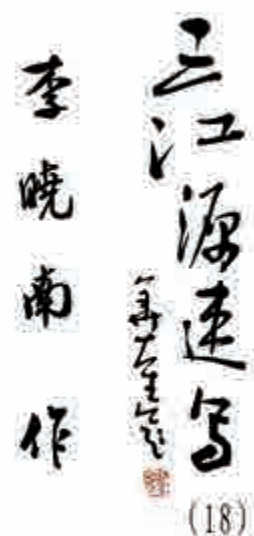 三江源速写
(18)
李晓南作